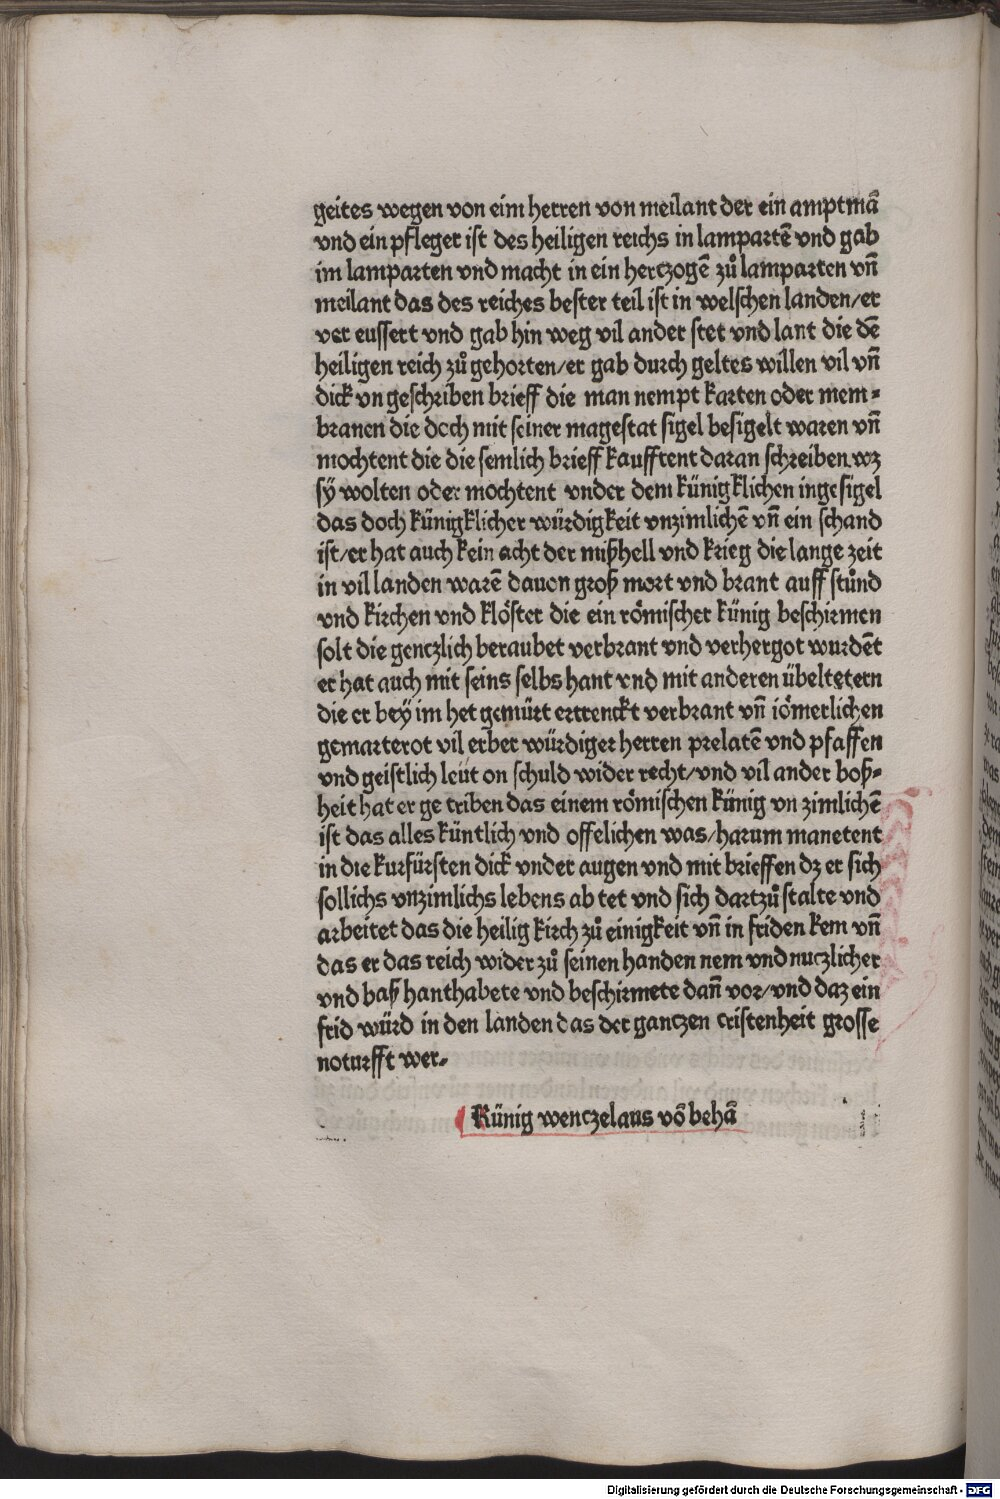 geites wegen von eim herren von meilant der ein amptmā
vnd ein pfleger ist des heiligen reichs in lampartē vnd gab
im lamparten vnd macht in ein hertzogē zů lamparten vn̄
meilant das des reiches bester teil ist in welschen landen/er
ver eussert vnd gab hin weg vil ander stet vnd lant die dē
heiligen reich zů gehorten/er gab durch geltes willen vil vn̄
dick vn geschriben brieff die man nempt karten oder mem-
branen die doch mit seiner magestat sigel besigelt waren vn̄
mochtent die die semlich brieff kaufftent daran schreiben wz
sÿ wolten oder mochtent vnder dem künigklichen ingesigel
das doch künigklicher würdigkeit vnzimlichē vn̄ ein schand
ist/er hat auch kein acht der mißhell vnd krieg die lange zeit
in vil landen warē dauon groß mort vnd brant auff stůnd
vnd kirchen vnd klöster die ein römischer künig beschirmen
solt die genczlich beraubet verbrant vnd verhergot wurdēt
er hat auch mit seins selbs hant vnd mit anderen übeltetern
die er beÿ im het gemürt ertrenckt verbrant vn̄ iömerlichen
gemarterot vil erber würdiger herren prelatē vnd pfaffen
vnd geistlich leüt on schuld wider recht/vnd vil ander boß-
heit hat er ge triben das einem römischen künig vn zimlichē
ist das alles küntlich vnd offelichen was/harum manetent
in die kurfürsten dick vnder augen vnd mit brieffen dz er sich
sollichs vnzimlichs lebens ab tet vnd sich dartzů stalte vnd
arbeitet das die heilig kirch zů einigkeit vn̄ in friden kem vn̄
das er das reich wider zů seinen handen nem vnd nuczlicher
vnd baß hanthabete vnd beschirmete dan̄ vor/vnd daz ein
frid würd in den landen das der gantzen cristenheit grosse
noturfft wer.
Künig wenczelaus vō behā
Digitalisierung gefördert durch die Deutsche Forschungsgemeinschaft - DFG